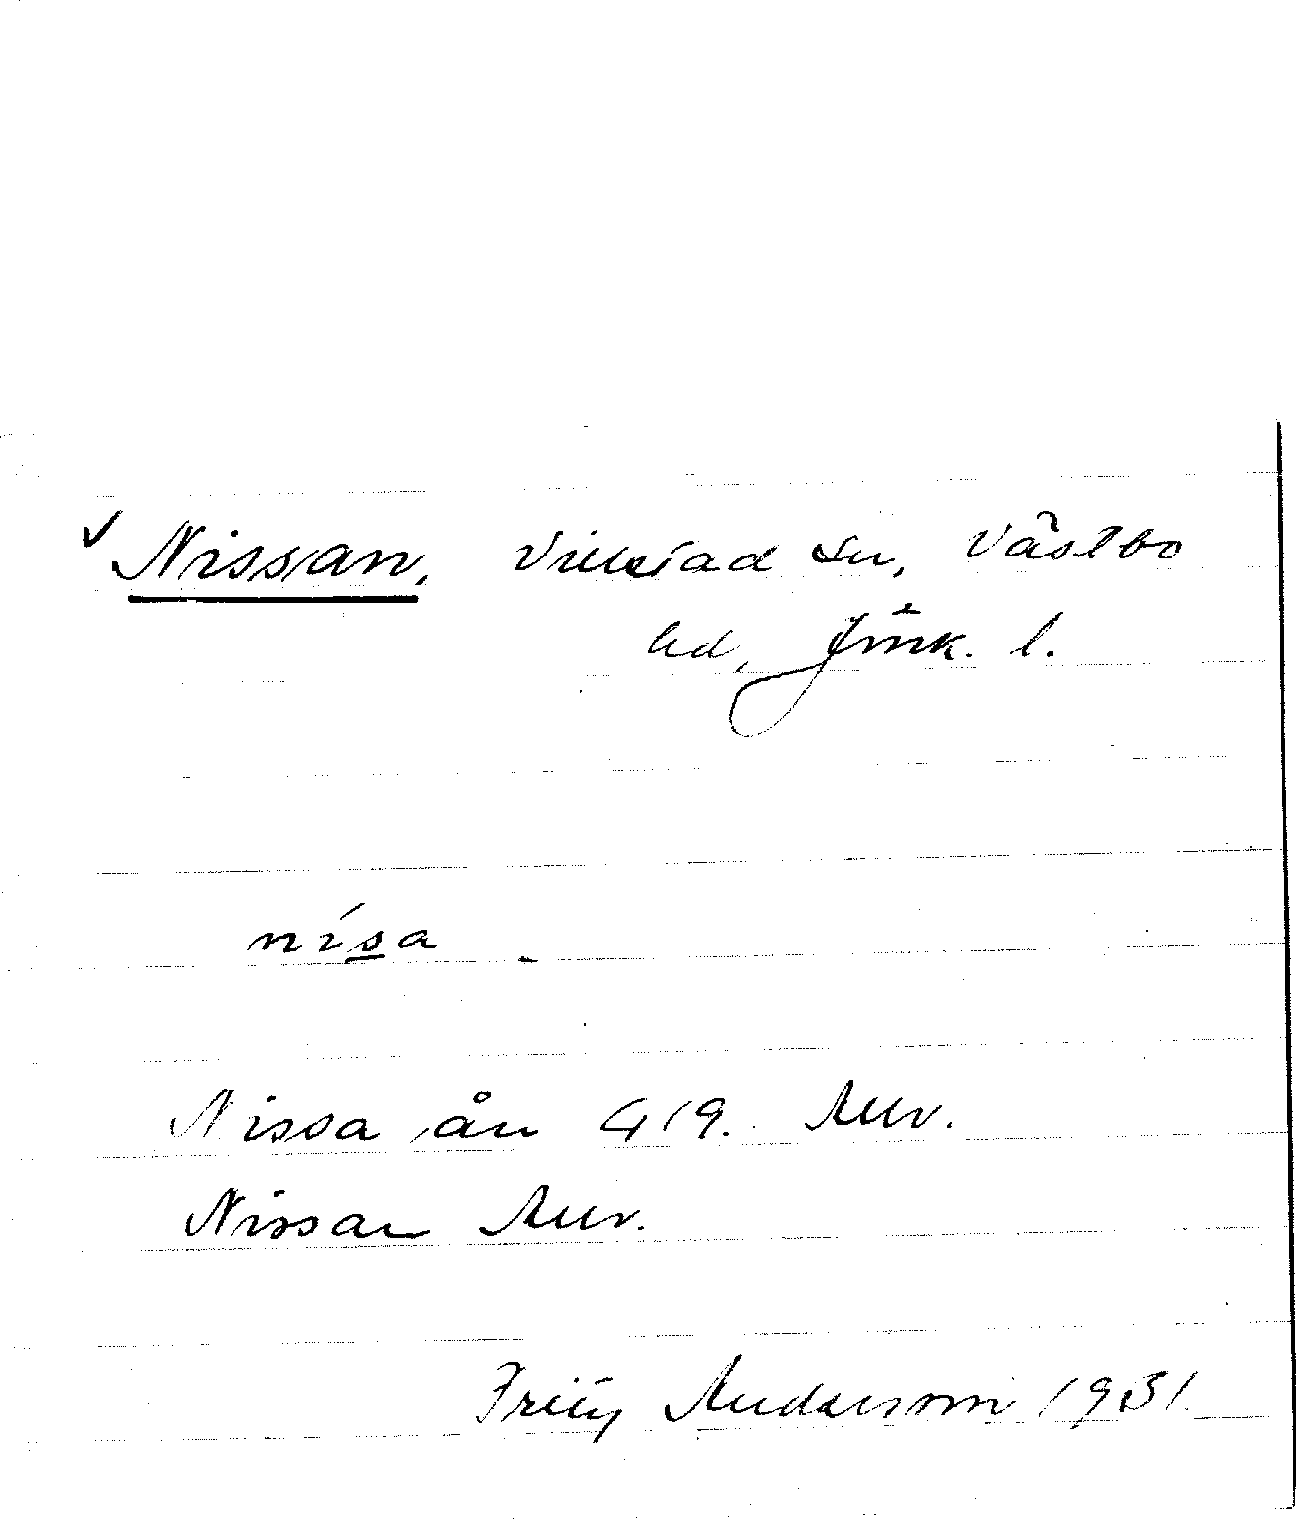 ✓ Nissan, Villstad sn, Västbo
hd, Jönk. l.
nísa
Nissa ån G 19. Anv.
Nissan Anv.
Fritz Andersson 1931.